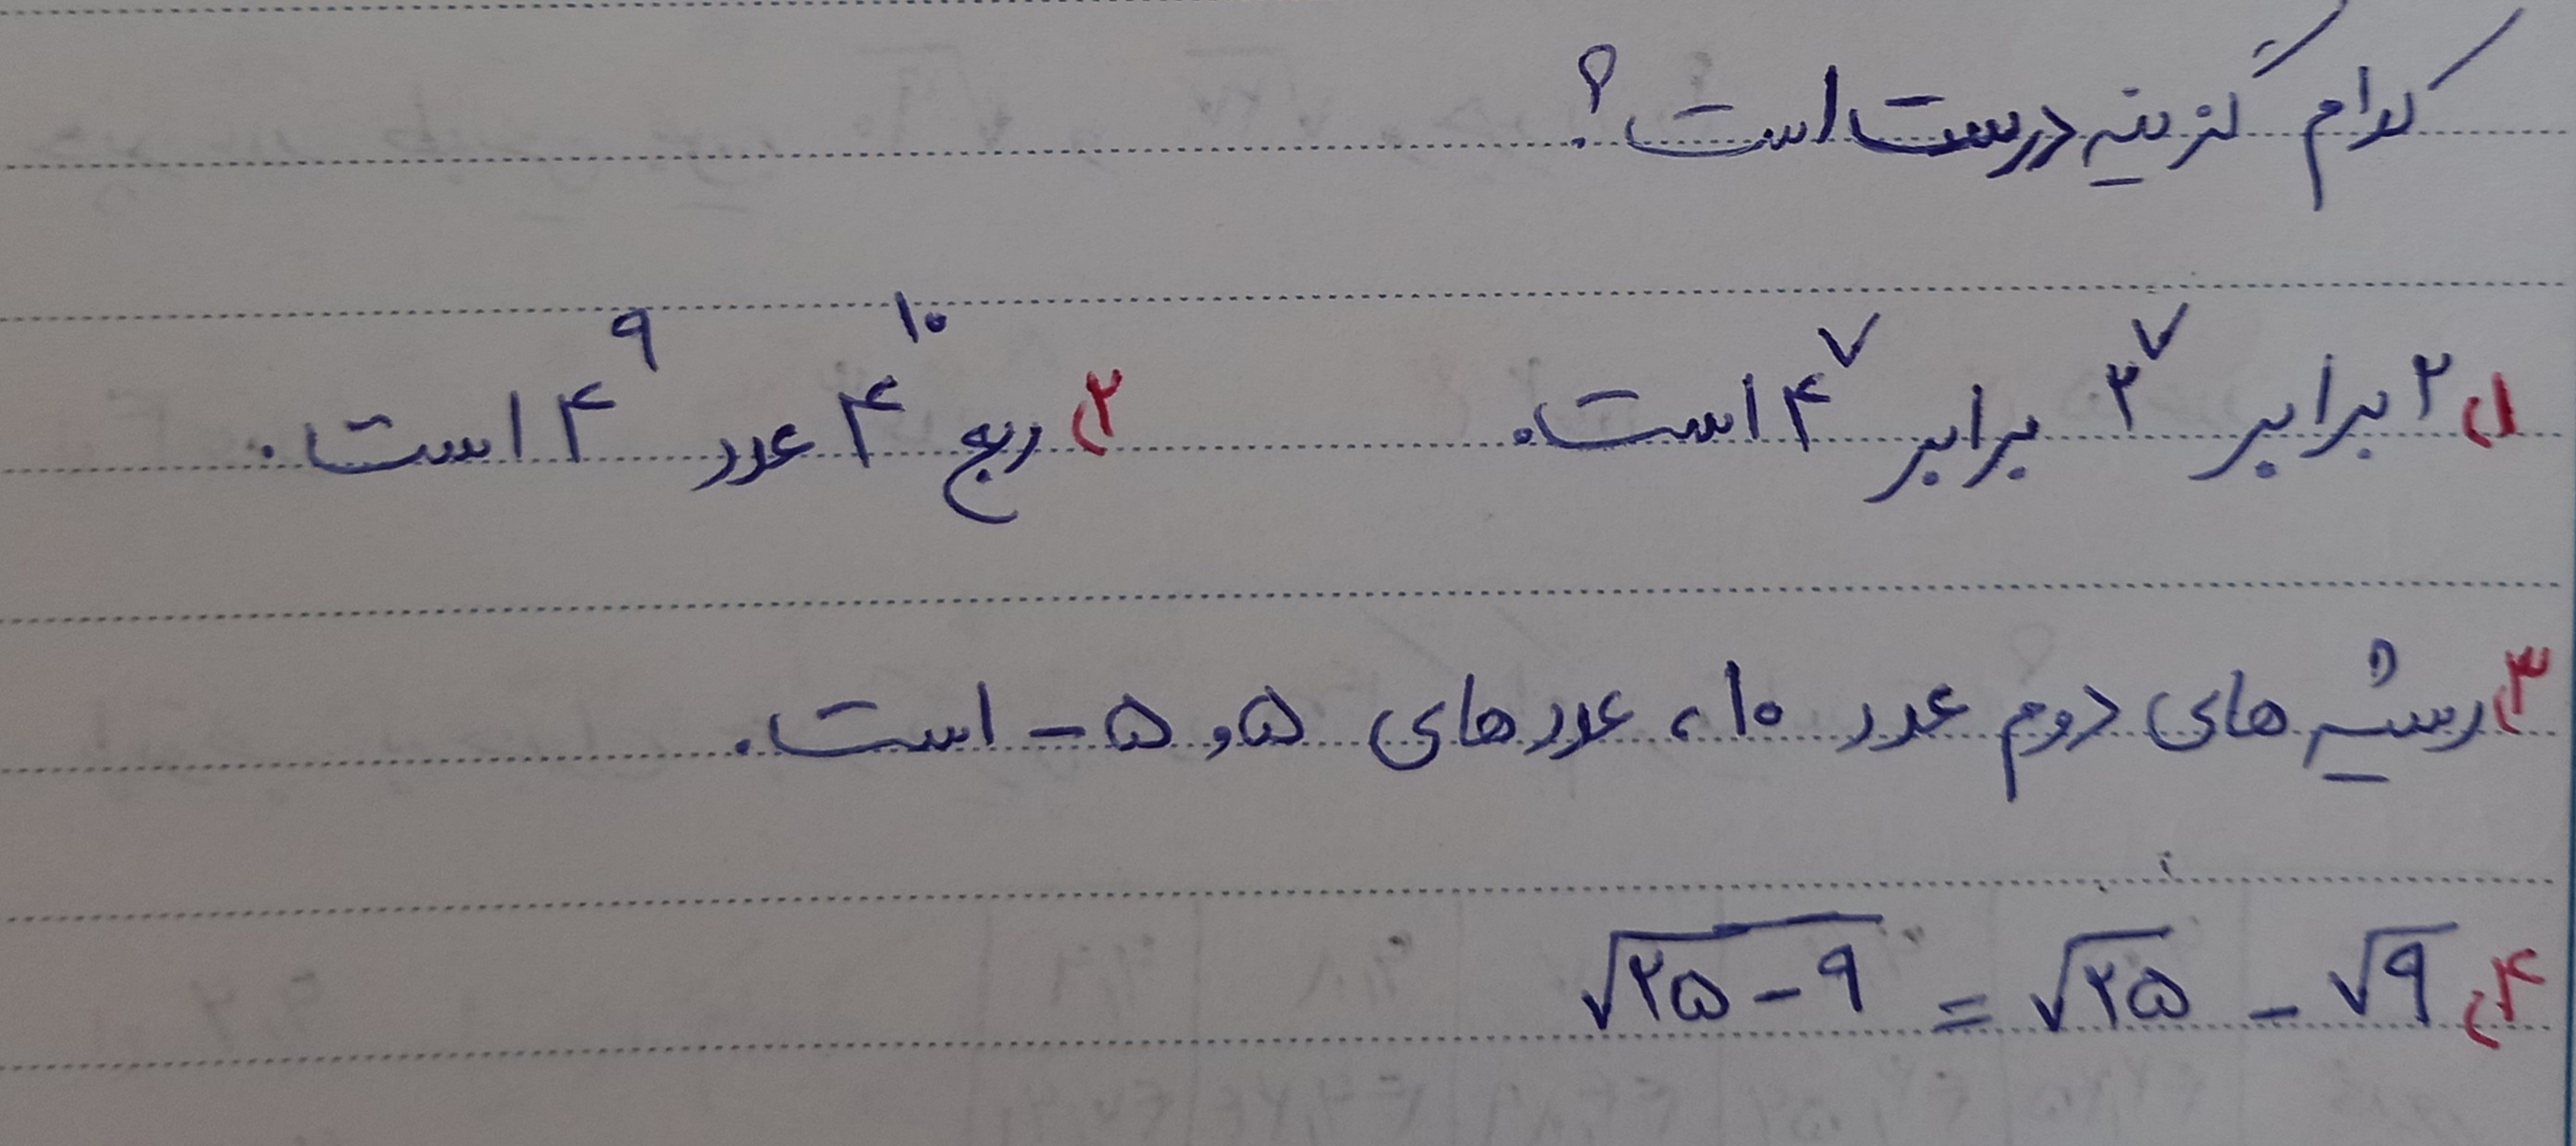 کدام گزینه درست است؟
۱) ۲ برابر ۲^۷ برابر ۴^۷ است. ۲) ربع ۴^۱۰ عدد ۴^۹ است.
۳) ریشه های دوم عدد ۱۰، عددهای ۵ و ۵- است.
۴) √۲۵-۹ = √۲۵ - √۹